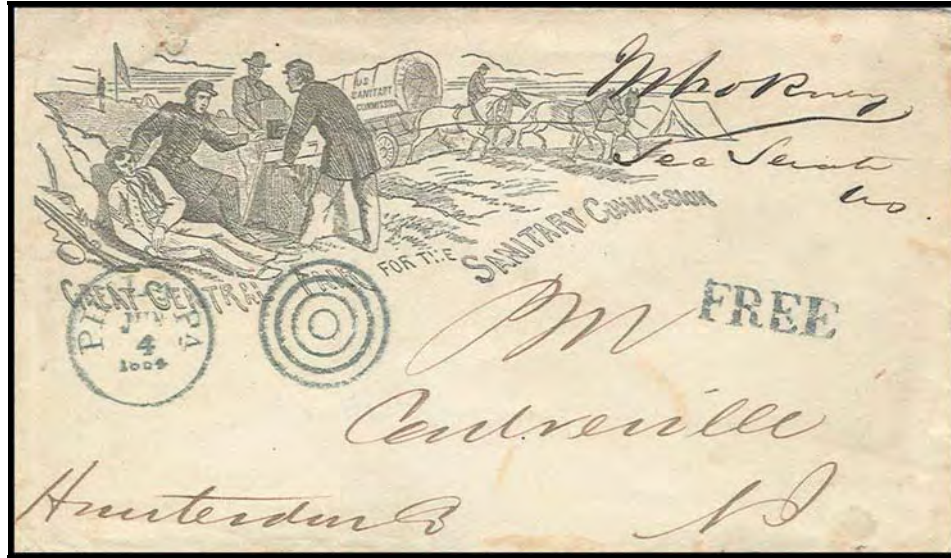 U.S
SANITARY
COMMISSION
GREAT CENTRAL FAIR FOR THE SANITARY COMMISSION
PA
4
FREE
PM
Centreville
Hunterdon
NJ